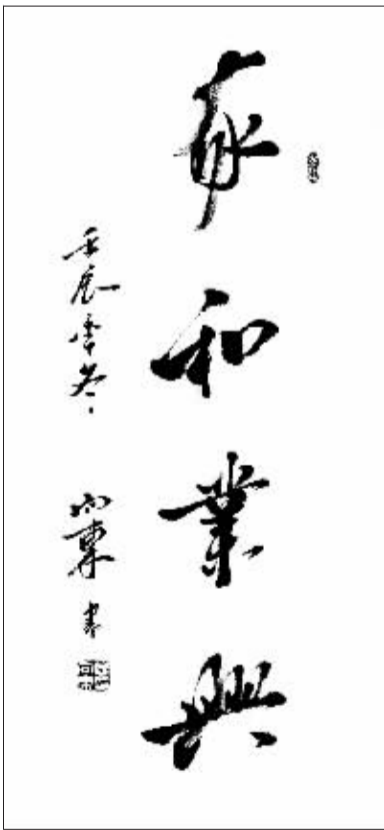 家和業興
壬辰
冬
書